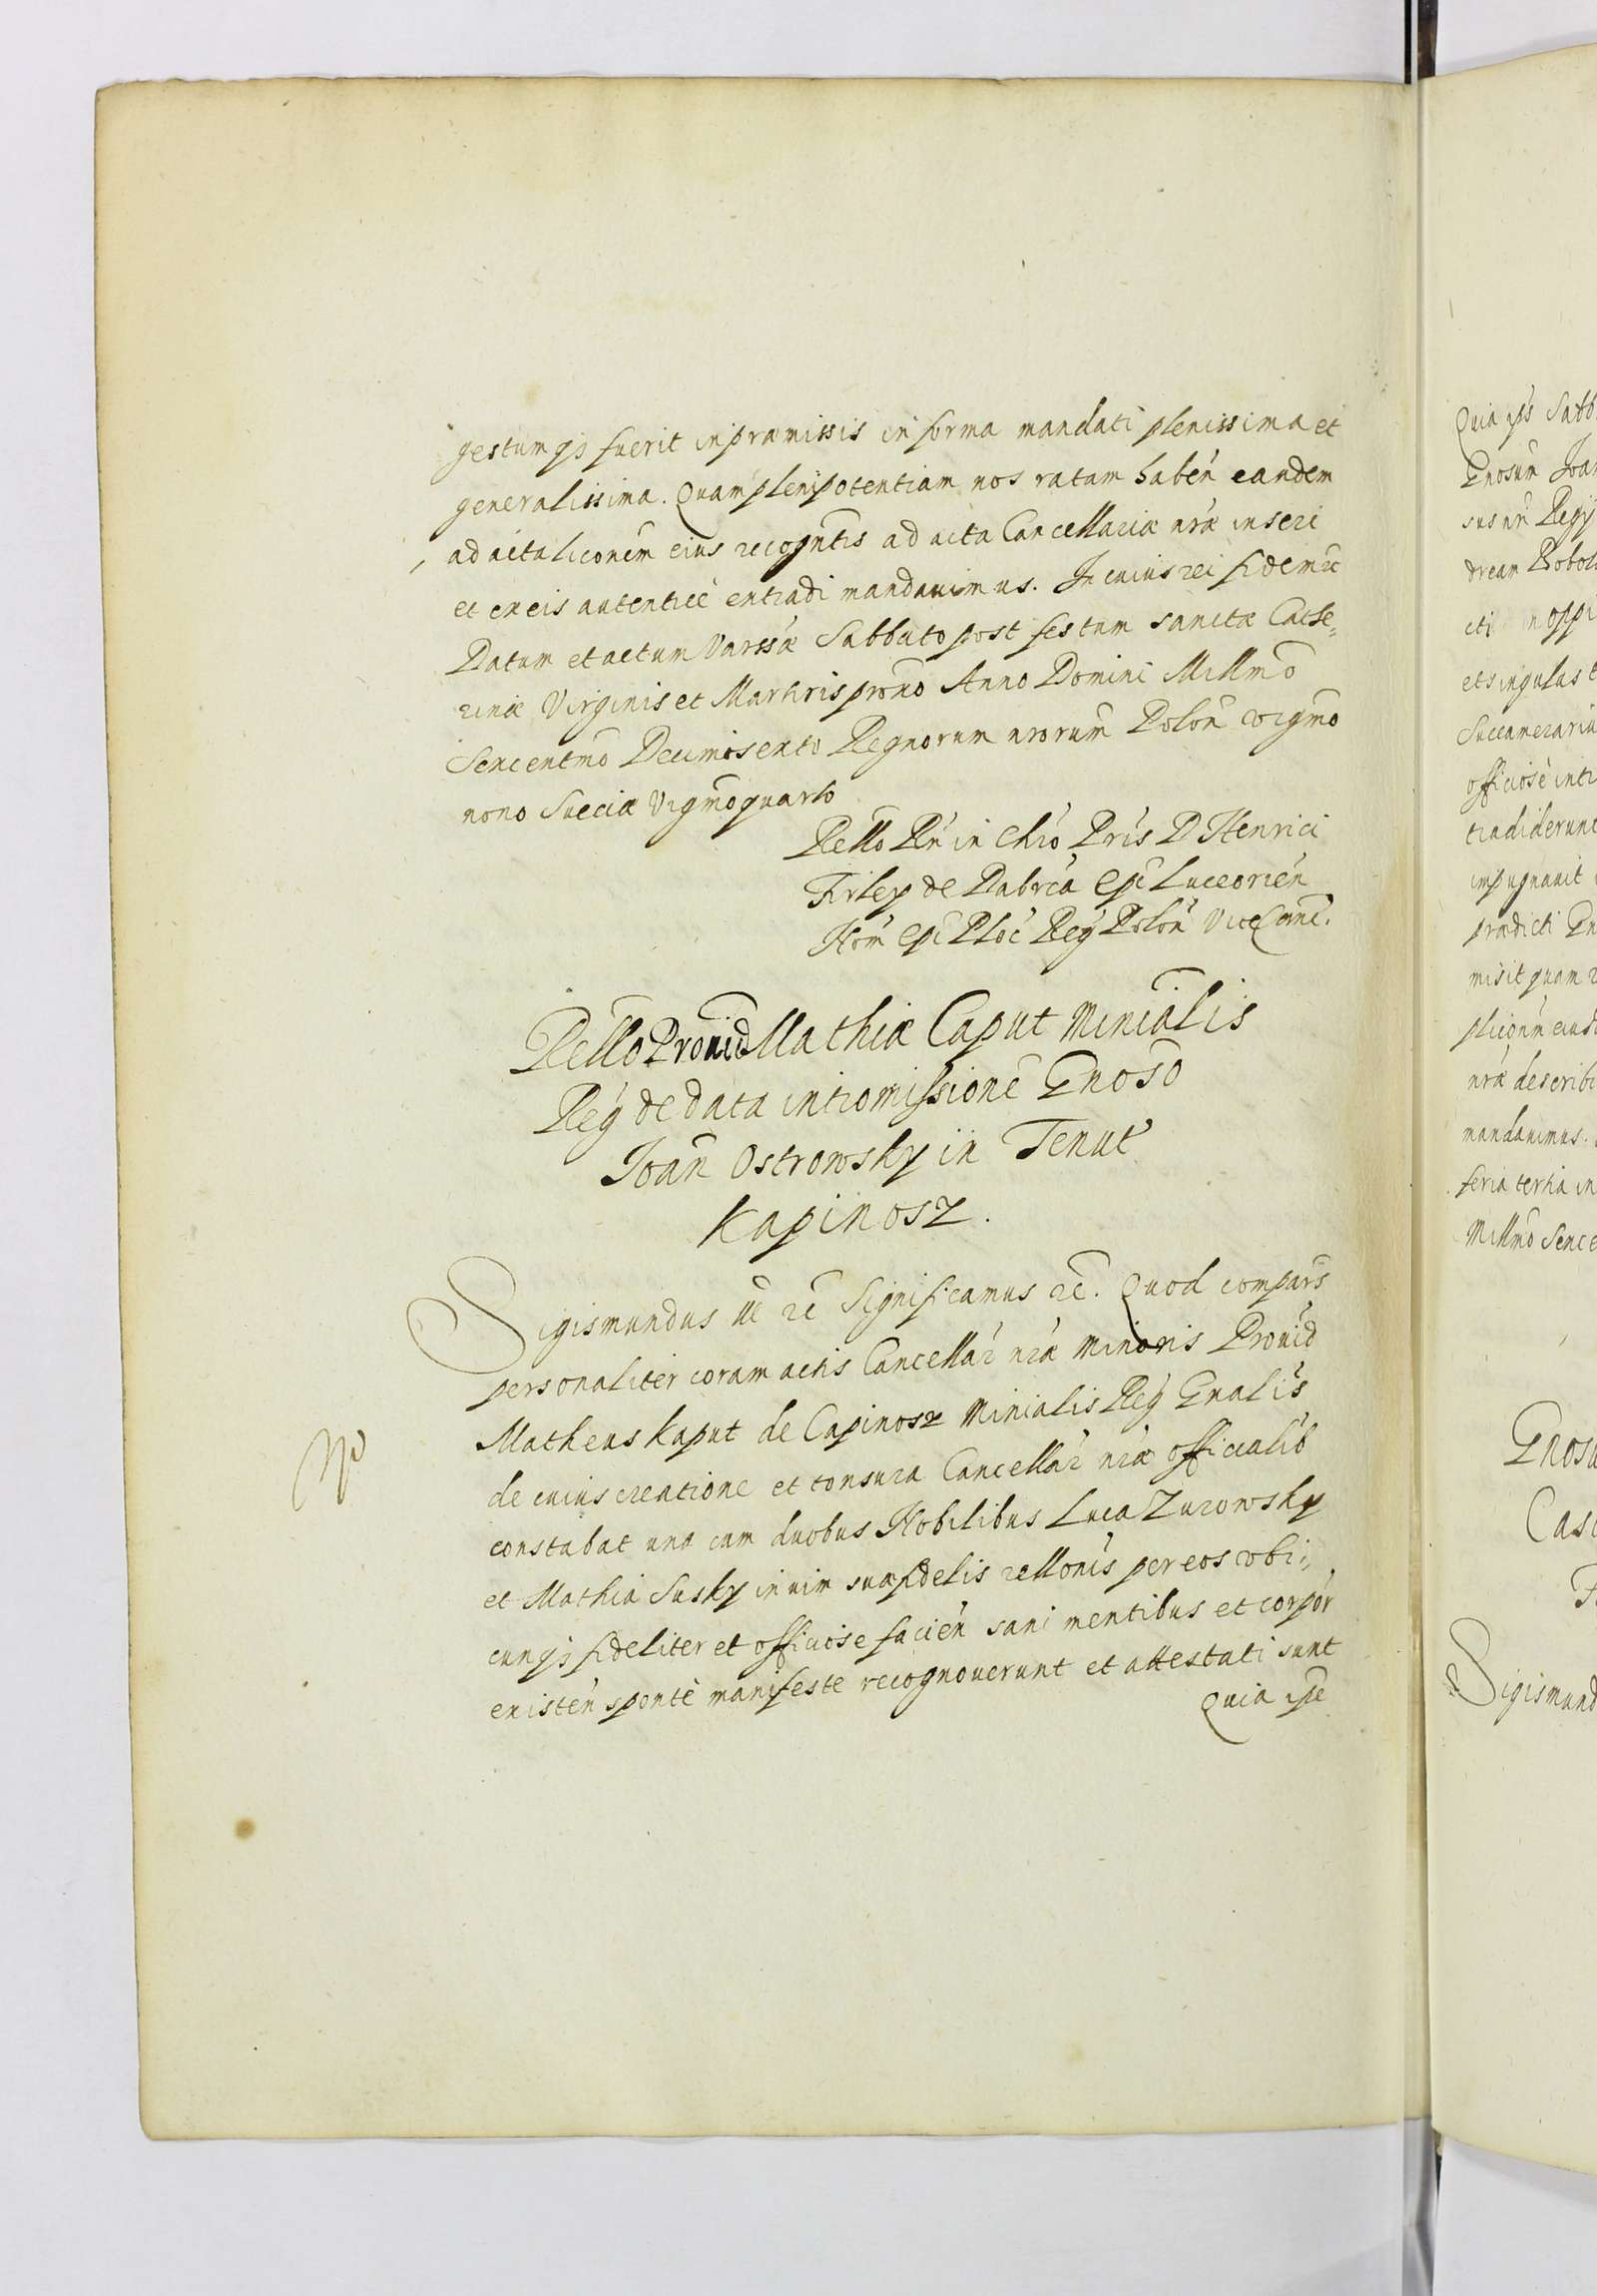 gestumq3 fuerit in præmissis in forma mandati plenissima et
generalissima. Quam plenipotentiam nos ratam habeń eandem
ad actaliconem eius recogntis ad acta Cancellariæ nræ inseri
et ex eis autenticè extradi mandavimus. In cuius rei fidem &c
Datum et actum Varssæ Sabbato post festum sanctæ Cathe=
rinæ Virginis et Martiris proxo Anno Domini Millmo
Sexcentmo Decimosexto Regnorum nrorum Polon vigmo
nono Sueciæ Vigmoquarto
Rello Rń in Chro Pris D Henrici
Firley de Dabrca Epi Luceorień
Nom Epi Ploc Reg Polon ViceCanc.
Rello Provid Mathiæ Caput Minialis
Reg de data intromissione Gnoso
Joan Ostrowsky in Tenut
Kapinosz.
Sigismundus III &c Significamus &c. Quod compars
personaliter coram actis Cancellar nræ Minoris Provid
Matheus Kaput de Capinosz Minialis Reg Gnalis
de cuius creatione et tonsura Cancellar nræ officialib
constabat una cum duobus Nobilibus Luca Zurowsky
et Mathia Susky in vim suæ fidelis rellonis per eos vbi=
cunq3 fideliter et officiose facień sani mentibus et corpor
existeń sponte manifeste recognoverunt et attestati sunt
Quia ipe
Quia ips Sabb
Gnosum Joan
sus nr Regy
dream
cti in oppi
et singulas
Succamerariu
officiosè int
tradiderunt
impugnavit
prædicti Gn
misit quam
pliconem
nræ describ
mandavimus.
feria tertia in
Millmo Sexce
Gnosu
Cas
F
Sigismund